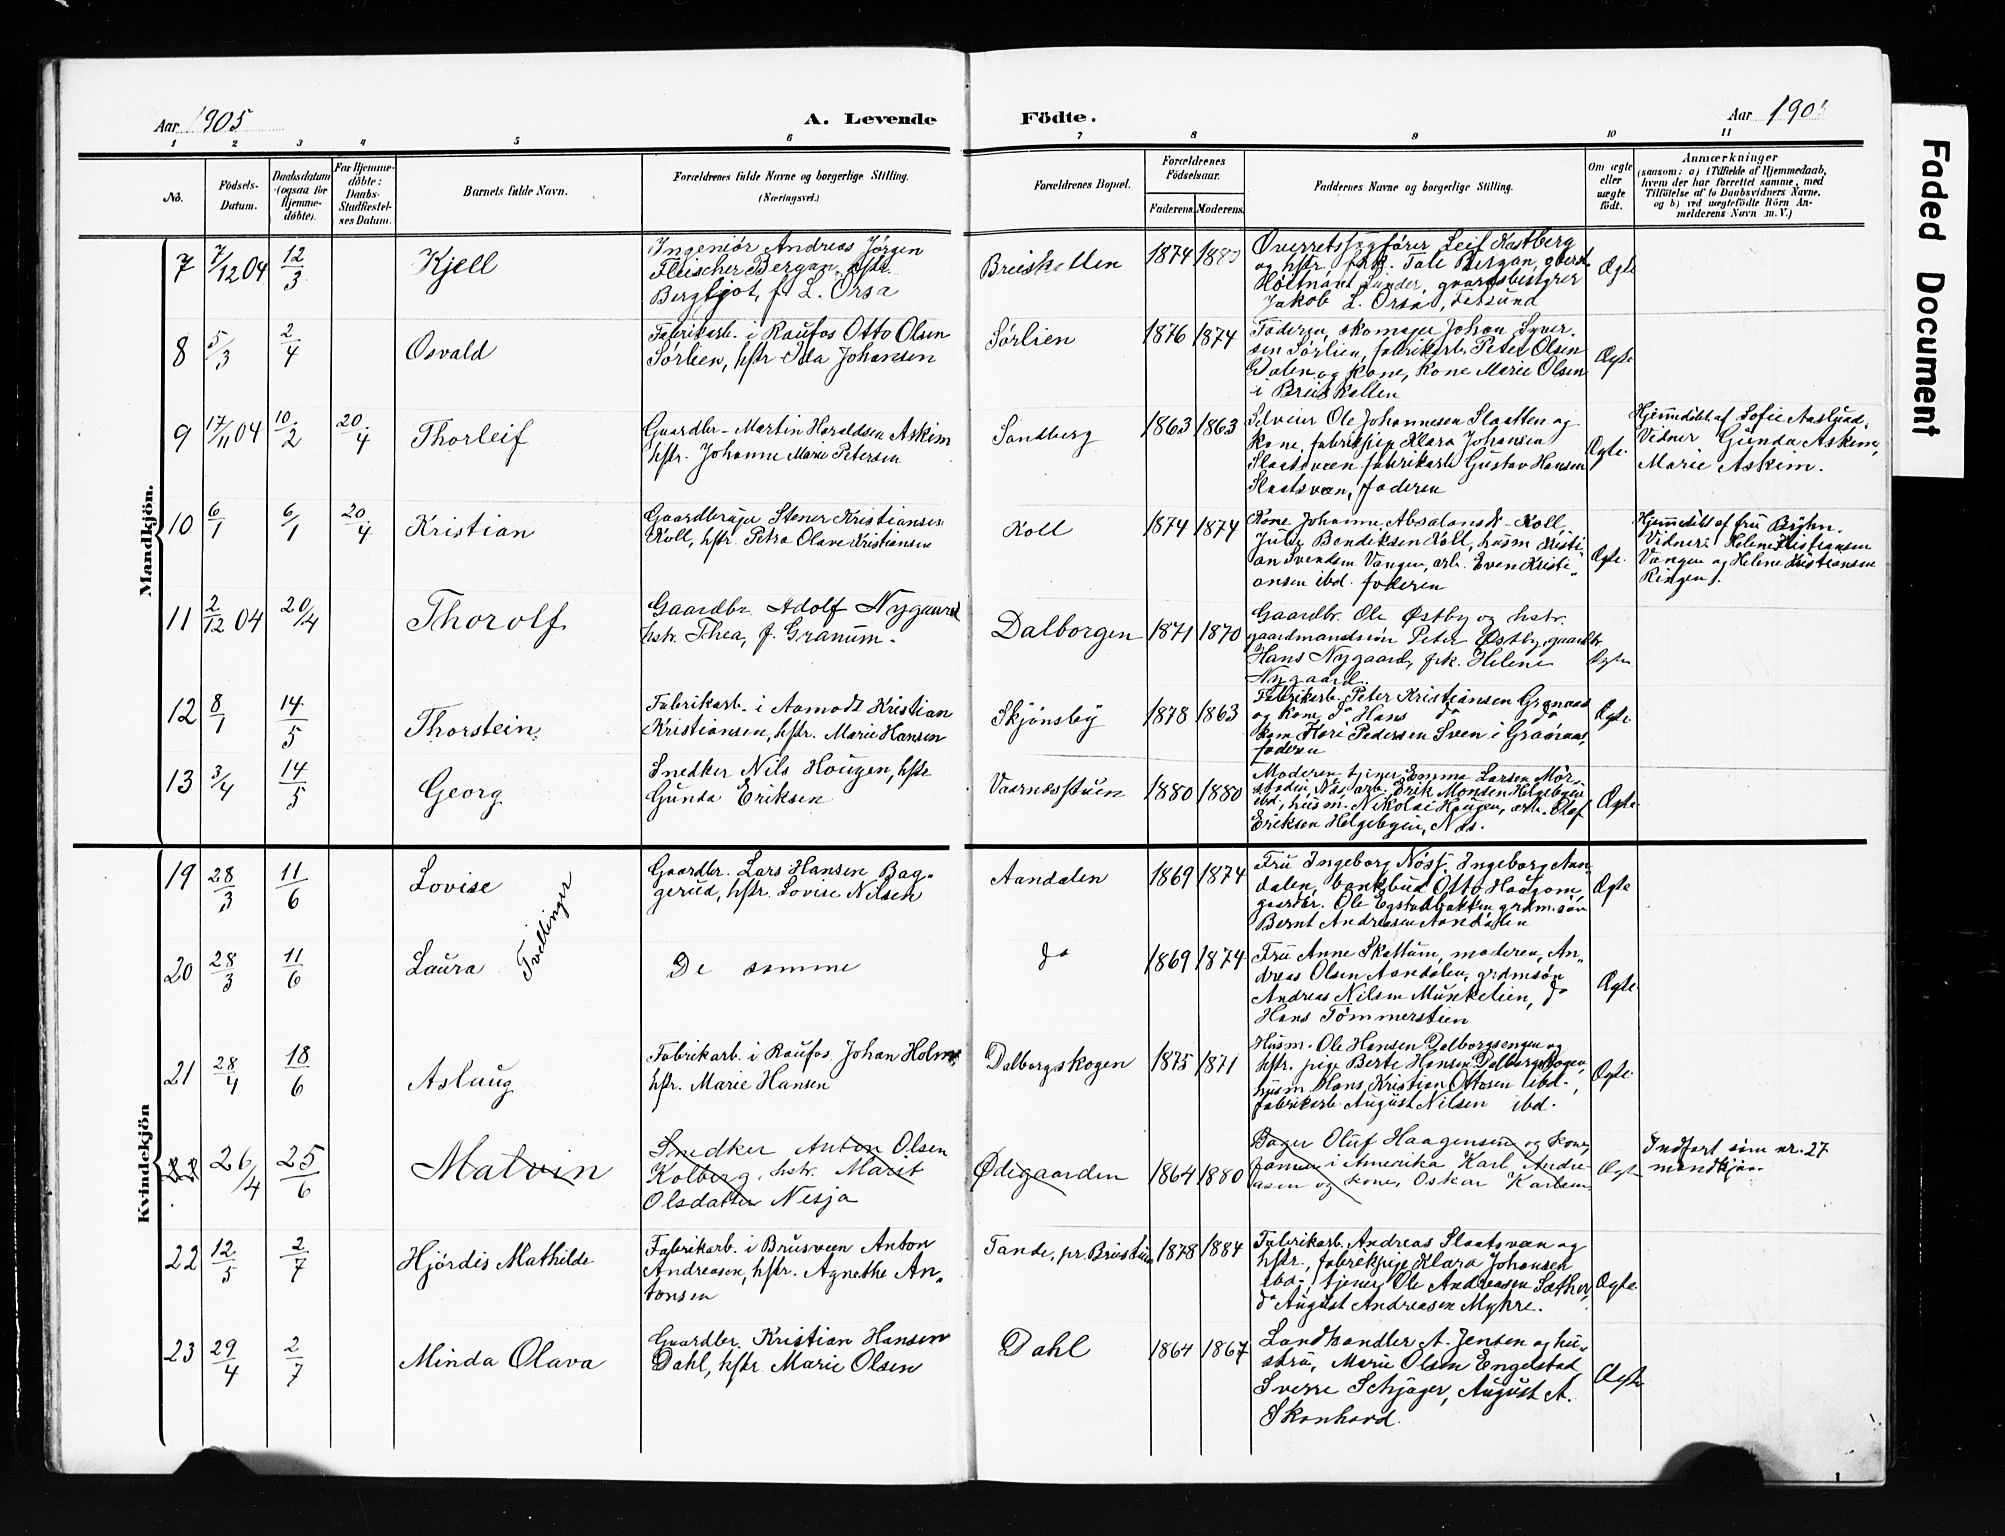 Aar 1905
A. Levende
Födte.
Aar 190
1 2 3 4 5 6 7 8 9 10 11
No.
Födsels-Datum.
Daabsdatum (ogsaa for Hjemme-döbte).
For Hjemme-döbte: Daabs-Stadfæstel-ses Datum.
Barnets fulde Navn.
Forældrenes fulde Navne og borgerlige Stilling.
(Næringsvei.)
Forældrenes Bopæl.
Forældrenes Födselsaar.
Faderens. Moderens.
Faddernes Navne og borgerlige Stilling.
Om ægte eller uægte födt.
Anmærkninger
(saasom: a) i Tilfælde af Hjemmedaab,
hvem der har forrettet samme, med
Tilföielse af to Daabsvidners Navne.
og b) ved uægtefödte Börn An-
melderens Navn m. V.)
Mandkjön.
7 7/12 04 12/3 Kjell
Ingeniør Andreas Jørgen
Fleischer Bergan, hstr.
Bergljot, f. L. Orsa
Breiskallen 1874
Overretssagfører Leif Kastberg
og hstr. frk. Tale Bergan,
gaardsbestyrer
Jakob L. Orsa, Fetsund
Ægte
8 5/3 2/4 Osvald
Fabrikarb. i Raufos Otto Olsen
Sørlien, hstr. Ida Johansen
Sørlien 1876 1874
Faderen, skomager Johan Syver-
sen Sørlien, fabrikarb. Peter Olsen
Dalen og kone, kone Marie Olsen
i Breiskallen
Ægte
9 17/11 04 10/2 20/4 Thorleif
Gaardbr. Martin Haraldsen Askim
hstr. Johanne Marie Petersen
Sandberg 1863 1863
Selveier Ole Johannesen Slaatten og
kone, fabrikpige Klara Johansen
Slaatsveen fabrikarb. Gustav Hansen
Slaatsveen, faderen
Ægte.
Hjemmedöbt af Sofie Aaslund.
Vidner Gunda Askim,
Marie Askim.
10 6/1 6/1 20/4 Kristian
Gaardbruger Stener Kristiansen
Koll, hstr. Petra Olave Kristiansen
Koll 1874 1874
Kone Johanne Absalonsdt. Koll
Julie Bendiksen Koll, husm. Kristi-
an Svendsen Vangen, arb. Even Kristi-
ansen ibd. faderen
Ægte.
Hjemmedöbt af fru Bøhn.
Vidner: Helene Kristiansen
Vangen og Helene Kristiansen
Ringen.
11 2/12 04 20/4 Thorolf
Gaardbr. Adolf Nygaard
hstr. Thea, f. Granum.
Dalborgen 1871 1870
Gaardbr. Ole Østby og hstr.
gaardmandssøn Peter Østby, gaardbr.
Hans Nygaard, frk. Helene
Nygaard.
Ægte
12 8/1 14/5 Thorstein
Fabrikarb. i Aamodt Kristian
Kristiansen, hstr. Marie Hansen
Skjønsby 1878 1863
Fabrikarb. Peter Kristiansen Grønaas
og kone, do Hans do do
Pedersen Sven i Grønaas,
faderen
Ægte
13 3/4 14/5 Georg
Snedker Nils Hougen, hstr.
Gunda Eriksen
Vaarnæsstuen 1880 1880
Moderen, tjener Emma Larsen Mør-
stadin, Næs, arb. Erik Monsen Helgebyeie
ibd, husm. Nikolai Haugen, arb. Olaf
Eriksen Helgebyeie, Næs.
Ægte
Kvindekjön
19 28/3 11/6 Lovise
Tvellinger
Gaardbr. Lars Hansen Bag-
gerud, hstr. Lovise Nilsen
Aandalen 1869 1874
Fru Ingeborg Nøss, Ingeborg Aan-
dalen, bankbud Otto Haugom,
gaardbr. Ole grdm.søn
Bernt Andreasen Aandalen
Ægte
20 28/3 11/6 Laura
De samme
do 1869 1874
Fru Anne Skattum, moderen, An-
dreas Olsen Aandalen, grdmsøn
Andreas Nilsen Munkelien, do
Hans Tømmerstien
Ægte
21 28/4 18/6 Aslaug
Fabrikarb. i Raufos Johan Holm,
hstr. Marie Hansen
Dalborgskogen 1875 1871
Husm. Ole Hansen Dalborgsengen og
hstr. pige Berte Hansen Dalborgskogen,
husm. Hans Kristian Ottosen ibd.,
fabrikarb. August Nilsen ibd.
Ægte.
22 26/4 25/6 Malvin
Snedker Anton Olsen
Kolberg, hstr. Marit
Olsdatter Nesja
Ødegaarden 1864 1880
Bager Oluf Haagensen og kone,
i Amerika, Karl Andre-
asen og kone, Oskar Karlsen
Ægte
Indført som nr. 27
mandkjøn.
22 12/5 2/7 Hjørdis Mathilde
Fabrikarb. i Brusveen Anton
Andreasen, hstr. Agnethe An-
tonsen
Tande, pr. 1878 1884
Fabrikarb. Andreas Slaatsveen og
hstr., fabrikpige Klara Johansen
ibd. tjener Ole Andreasen Sæther,
do August Andreasen Myhre.
Ægte
23 29/4 2/7 Minda Olava
Gaardbr. Kristian Hansen
Dahl, hstr. Marie Olsen
Dahl 1864 1867
Landhandler A. Jensen og hu-
stru, Marie Olsen Engelstad
Sverre Schjager, August A.
Skonhord
Ægte
Faded Document